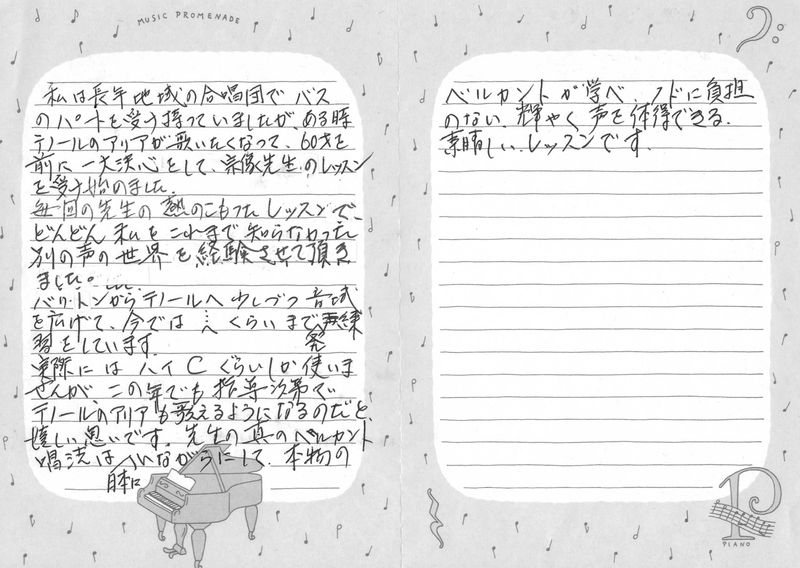 MUSIC PROMENADE
私は長年地域の合唱団でバス
のパートを受け持っていましたが、ある時
テノールのアリアが歌いたくなって、60才を
前に一大決心をして、宗像先生のレッスン
を受け始めました。
毎回の先生の熱のこもったレッスンで、
どんどん私をこれまで知らなかった
別の声の世界を経験させて頂き
ました。
バリトンからテノールへ少しづつ音域
を広げて、今では くらいまで発声練
習をしています。
実際にはハイCぐらいしか使いま
せんが、この年でも指導次第で
テノールのアリアも歌えるようになるのだと
嬉しい思いです。先生の真のベルカント
唱法は日本にいながらにして、本物の
ベルカントが学べ、ノドに負担
のない、輝やく声を体得できる、
素晴しいレッスンです。
PIANO